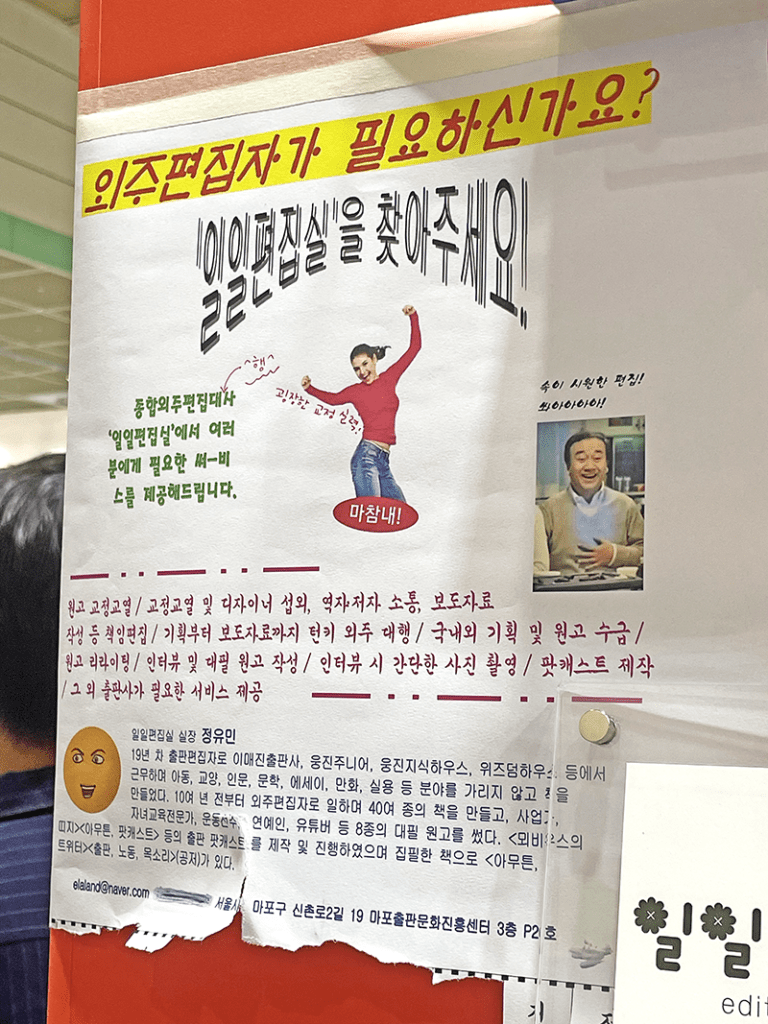 외주편집자가 필요하신가요?
'일일편집실'을 찾아주세요!
^행^
굉장한 교정 실력!
종합외주편집대사
'일일편집실'에서 여러
분에게 필요한 써-비
스를 제공해드립니다.
마참내!
속이 시원한 편집!
쏴아아아아!
원고 교정교열 / 교정교열 및 디자이너 섭외, 역자저자 소통, 보도자료
작성 등 책임편집 / 기획부터 보도자료까지 턴키 외주 대행 / 국내외 기획 및 원고 수급 /
원고 리라이팅 / 인터뷰 및 대필 원고 작성 / 인터뷰 시 간단한 사진 촬영 / 팟캐스트 제작
/ 그 외 출판사가 필요한 서비스 제공
일일편집실 실장 정유민
19년 차 출판편집자로 이매진출판사, 웅진주니어, 웅진지식하우스, 위즈덤하우스 등에서
근무하며 아동, 교양, 인문, 문학, 에세이, 만화, 실용 등 분야를 가리지 않고 책을
만들었다. 10여 년 전부터 외주편집자로 일하며 40여 종의 책을 만들고, 사업가,
자녀교육전문가, 운동선수, 연예인, 유튜버 등 8종의 대필 원고를 썼다. <뫼비우스의
띠지><아무튼, 팟캐스트> 등의 출판 팟캐스트를 제작 및 진행하였으며 집필한 책으로 <아무튼,
트위터><출판, 노동, 목소리>(공저)가 있다.
elaland@naver.com
마포구 신촌로2길 19 마포출판문화진흥센터 3층
일일
edit